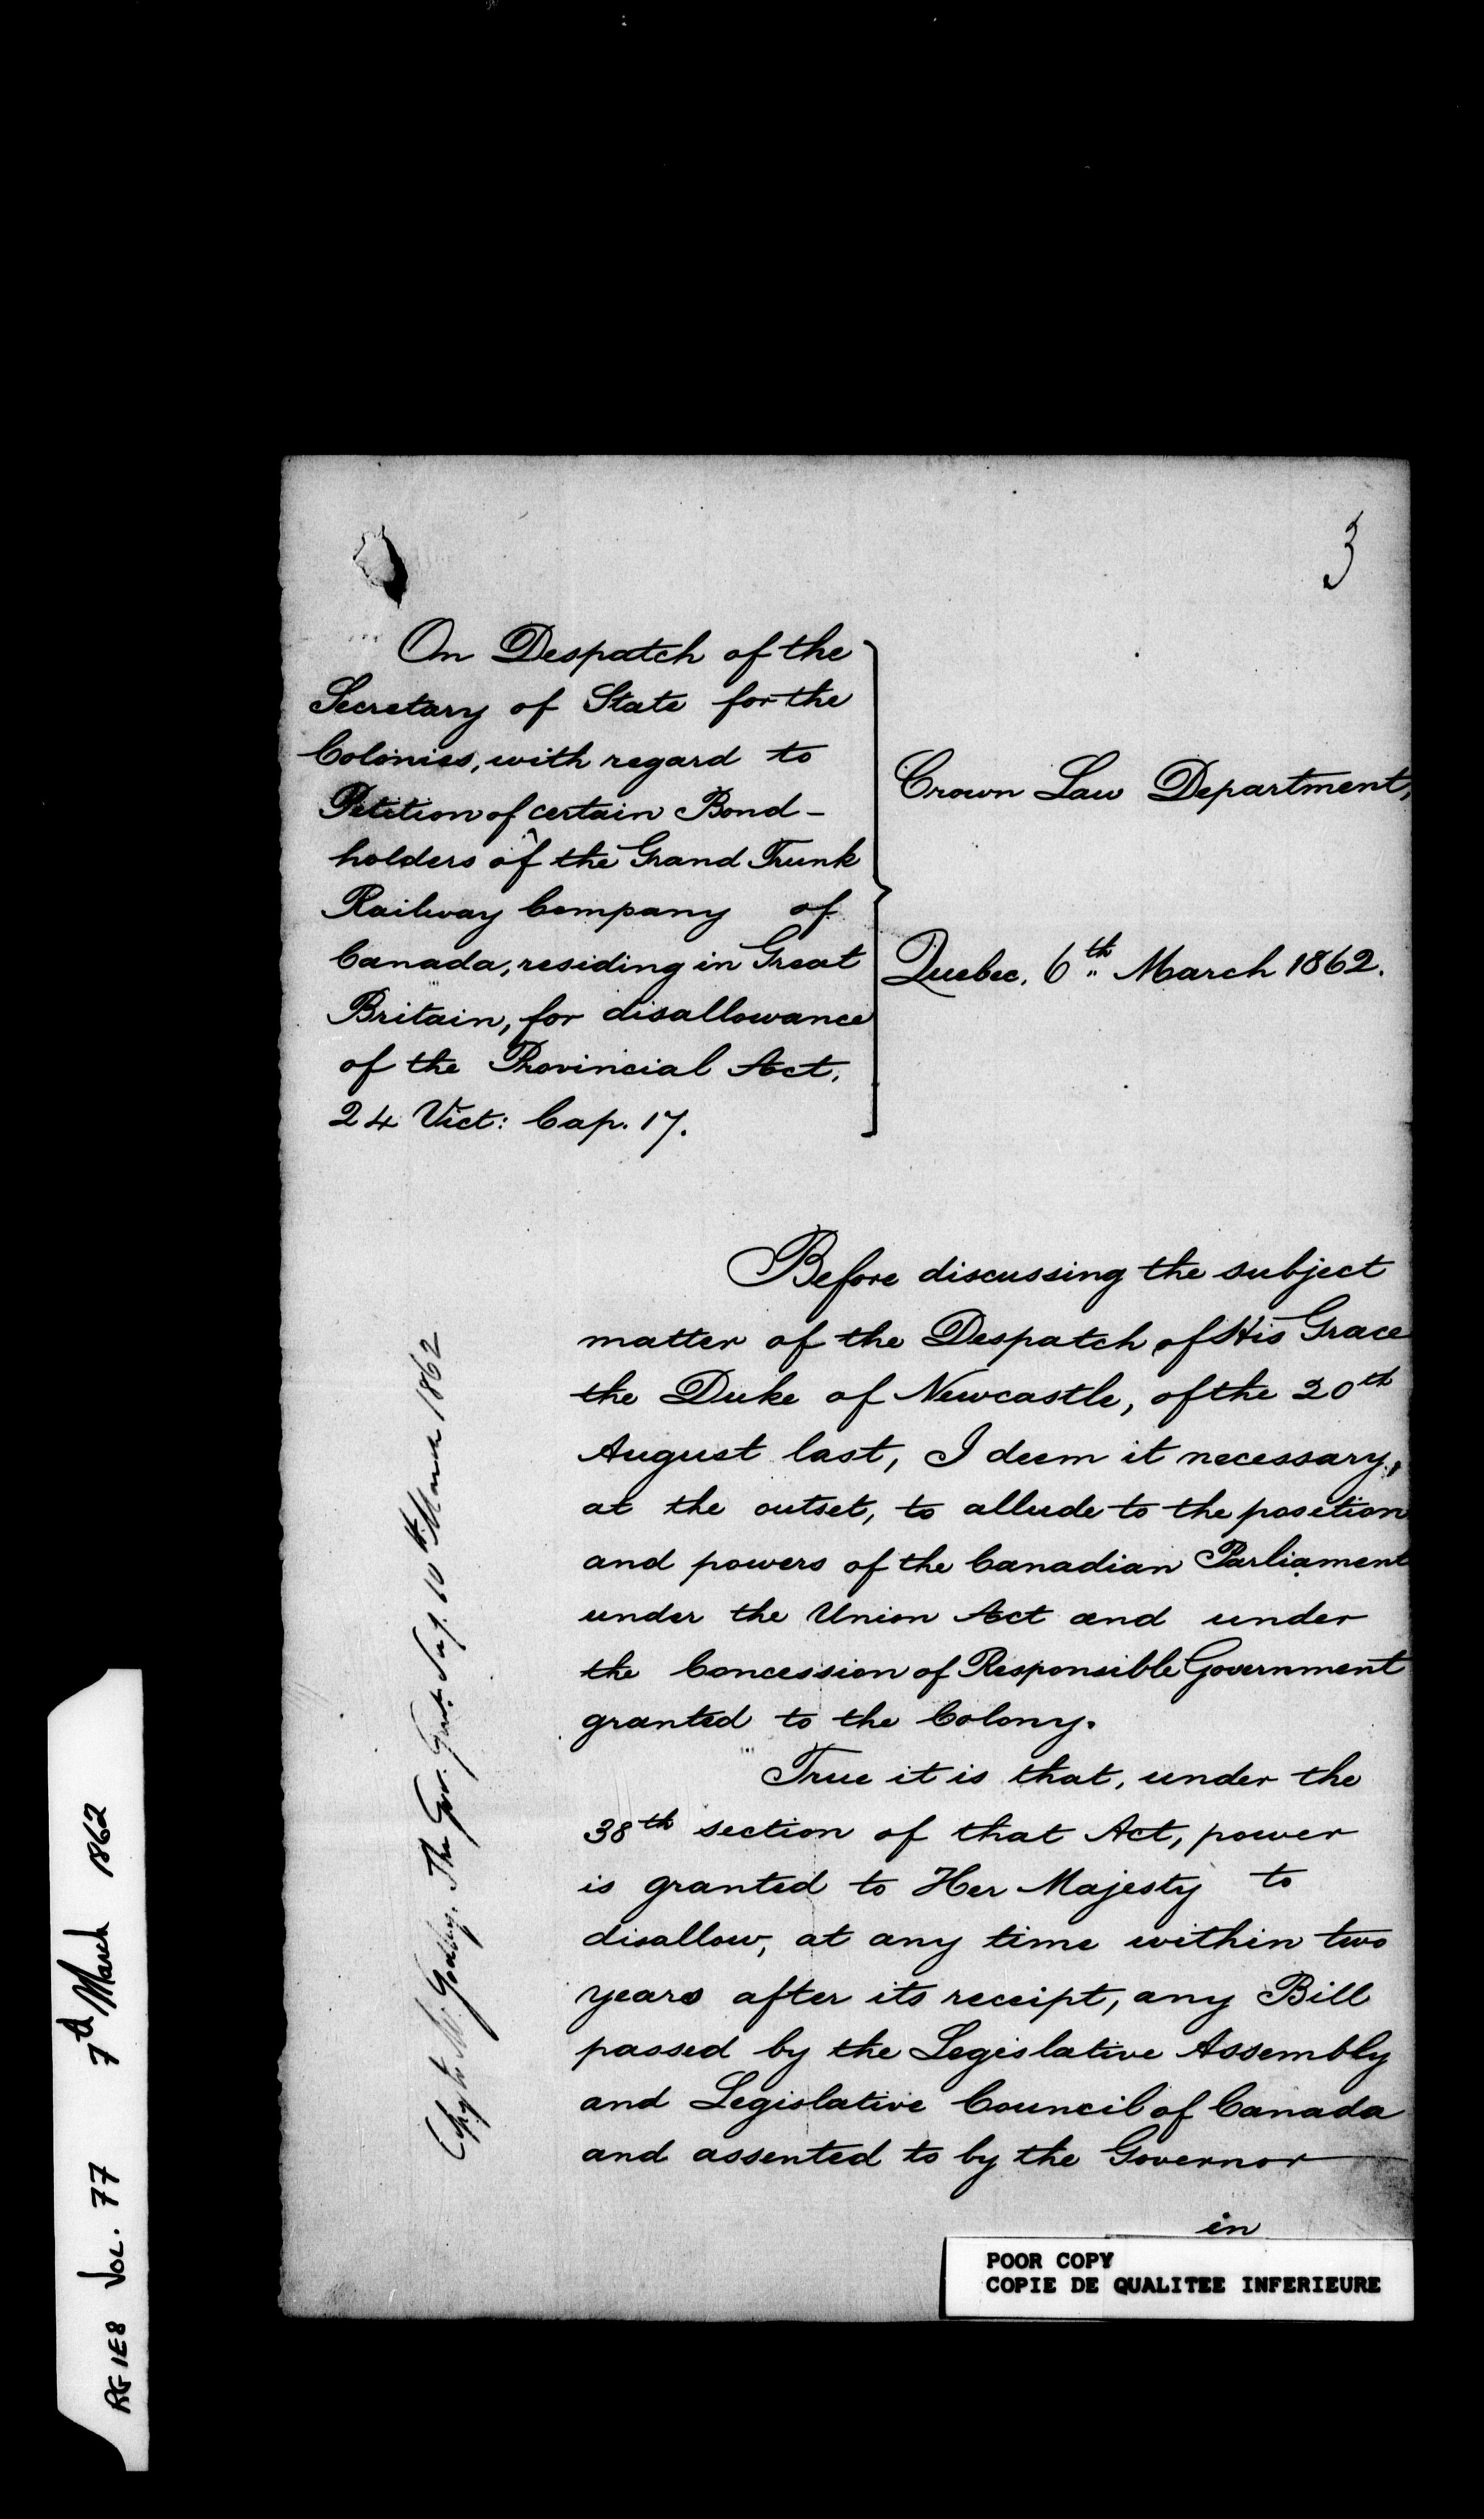 3
On Despatch of the
Secretary of State for the
Colonies, with regard to
Petition of certain Bond-
holders of the Grand Trunk
Railway Company of
Canada, residing in Great
Britain, for disallowance
of the Provincial Act,
24 Vict: Cap. 17.
Crown Law Department,
Quebec, 6th March 1862.
Before discussing the subject
matter of the Despatch of His Grace
the Duke of Newcastle, of the 20th
August last, I deem it necessary,
at the outset, to allude to the position
and powers of the Canadian Parliament
under the Union Act and under
the Concession of Responsible Government
granted to the Colony.
True it is that, under the
38th section of that Act, power
is granted to Her Majesty to
disallow, at any time within two
years after its receipt, any Bill
passed by the Legislative Assembly
and Legislative Council of Canada
and assented to by the Governor
in
Copy to Mr. Godley, The Gov. Genl. Sec. 10th March 1862
RG 1E8 VOL. 77 7th March 1862
POOR COPY
COPIE DE QUALITEE INFERIEURE